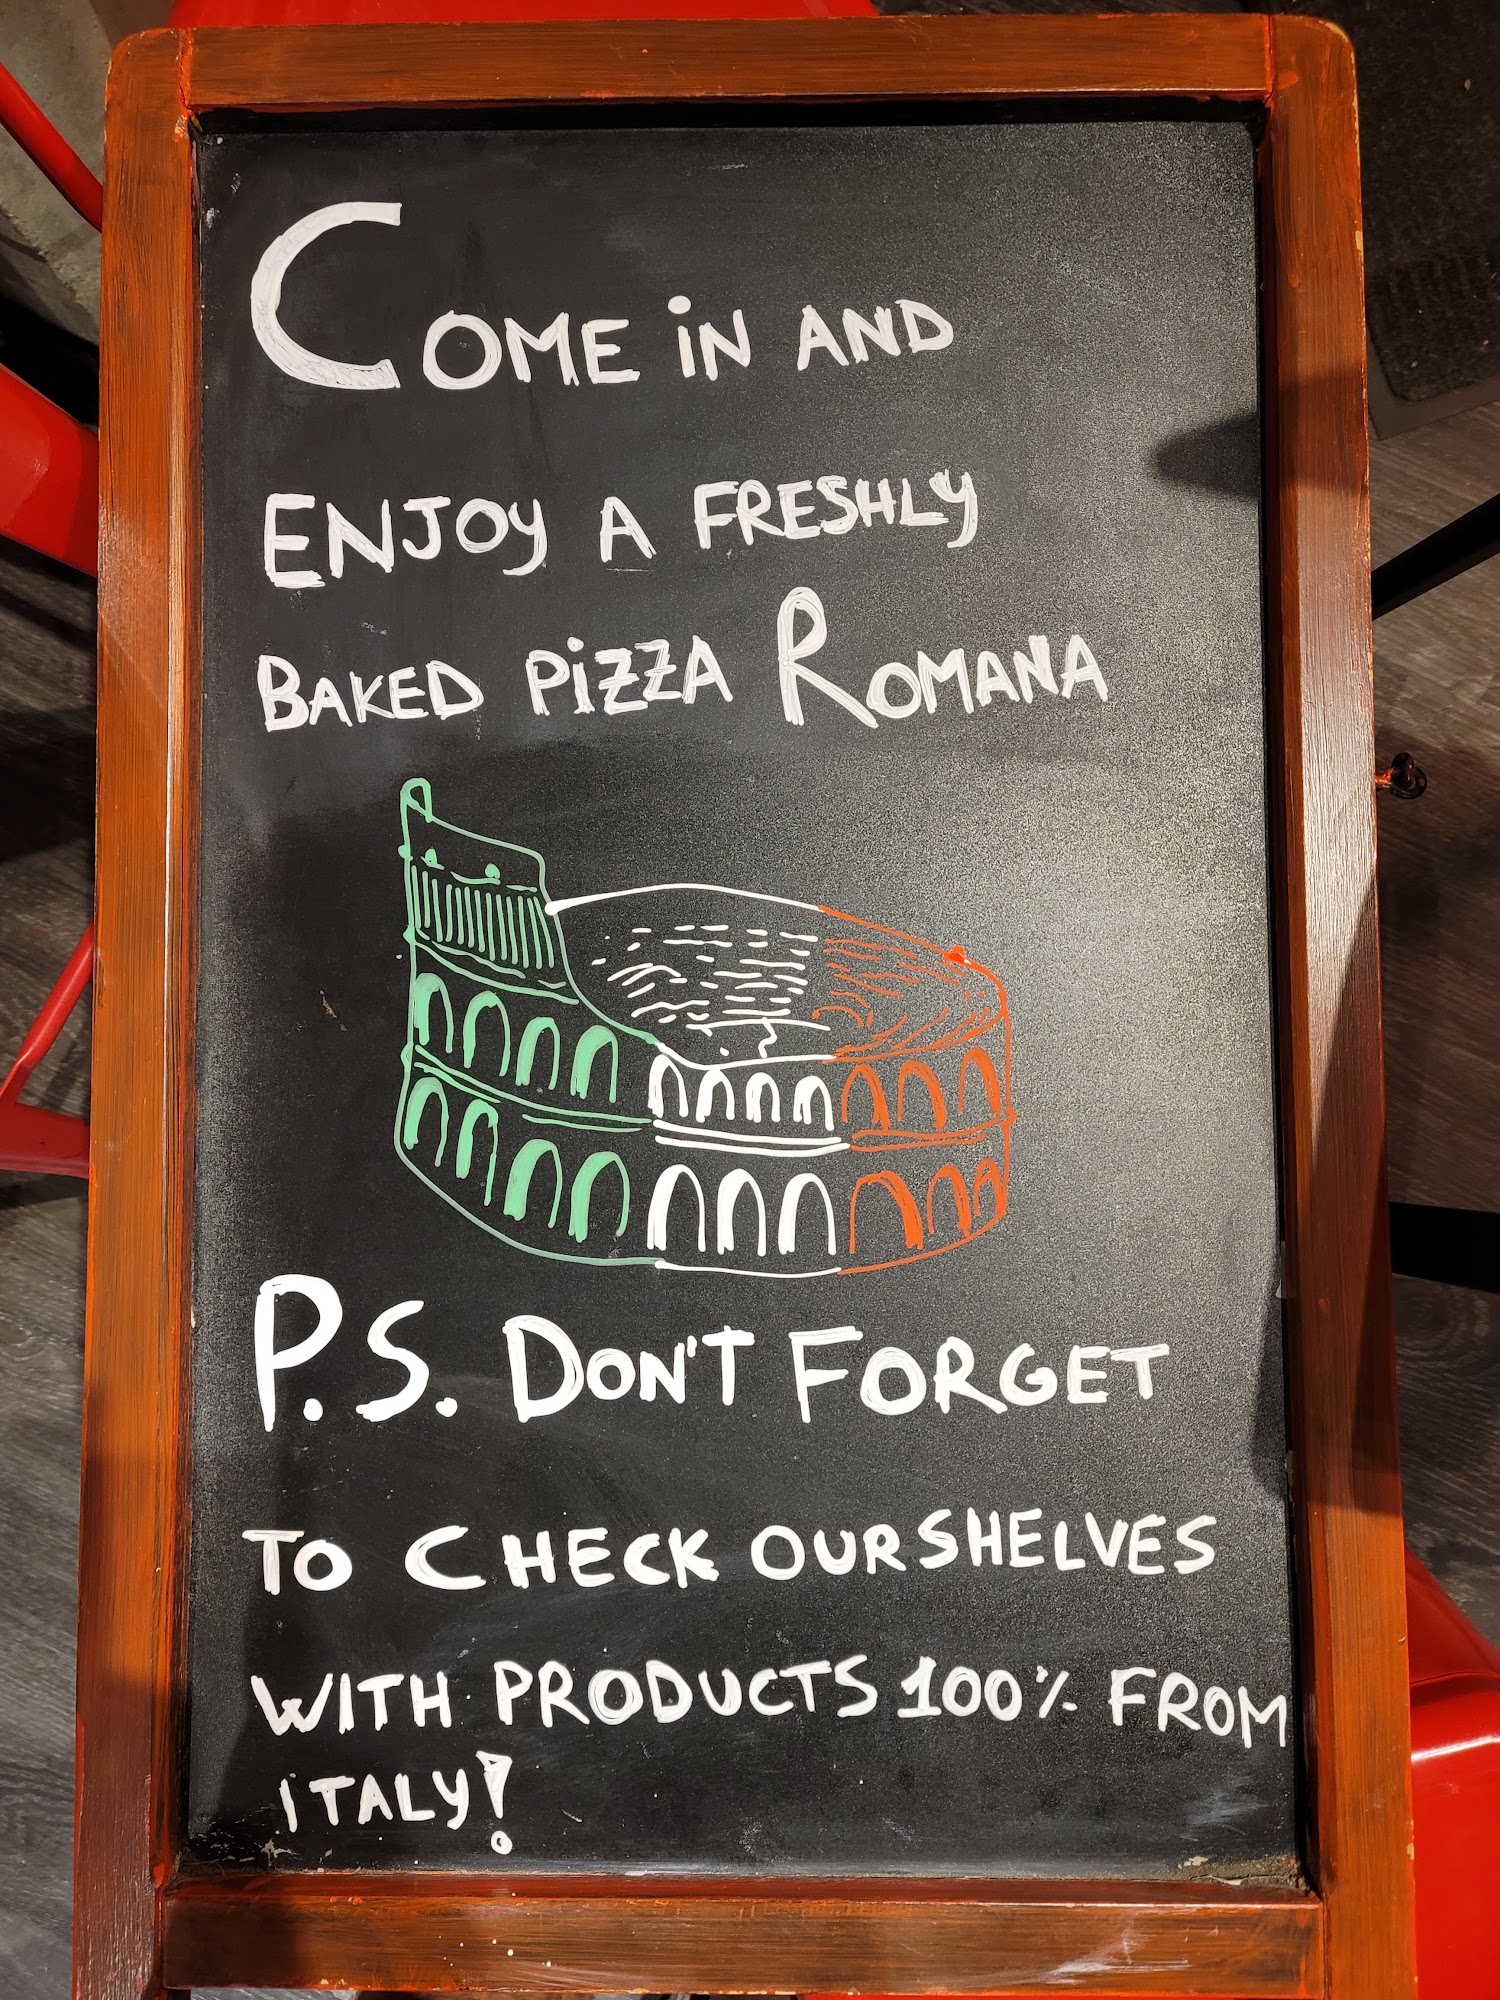 COME iN AND
ENJOY A FRESHLY
BAKED PiZZA ROMANA
P.S. DON'T FORGET
TO CHECK OUR SHELVES
WITH PRODUCTS 100% FROM
ITALY!